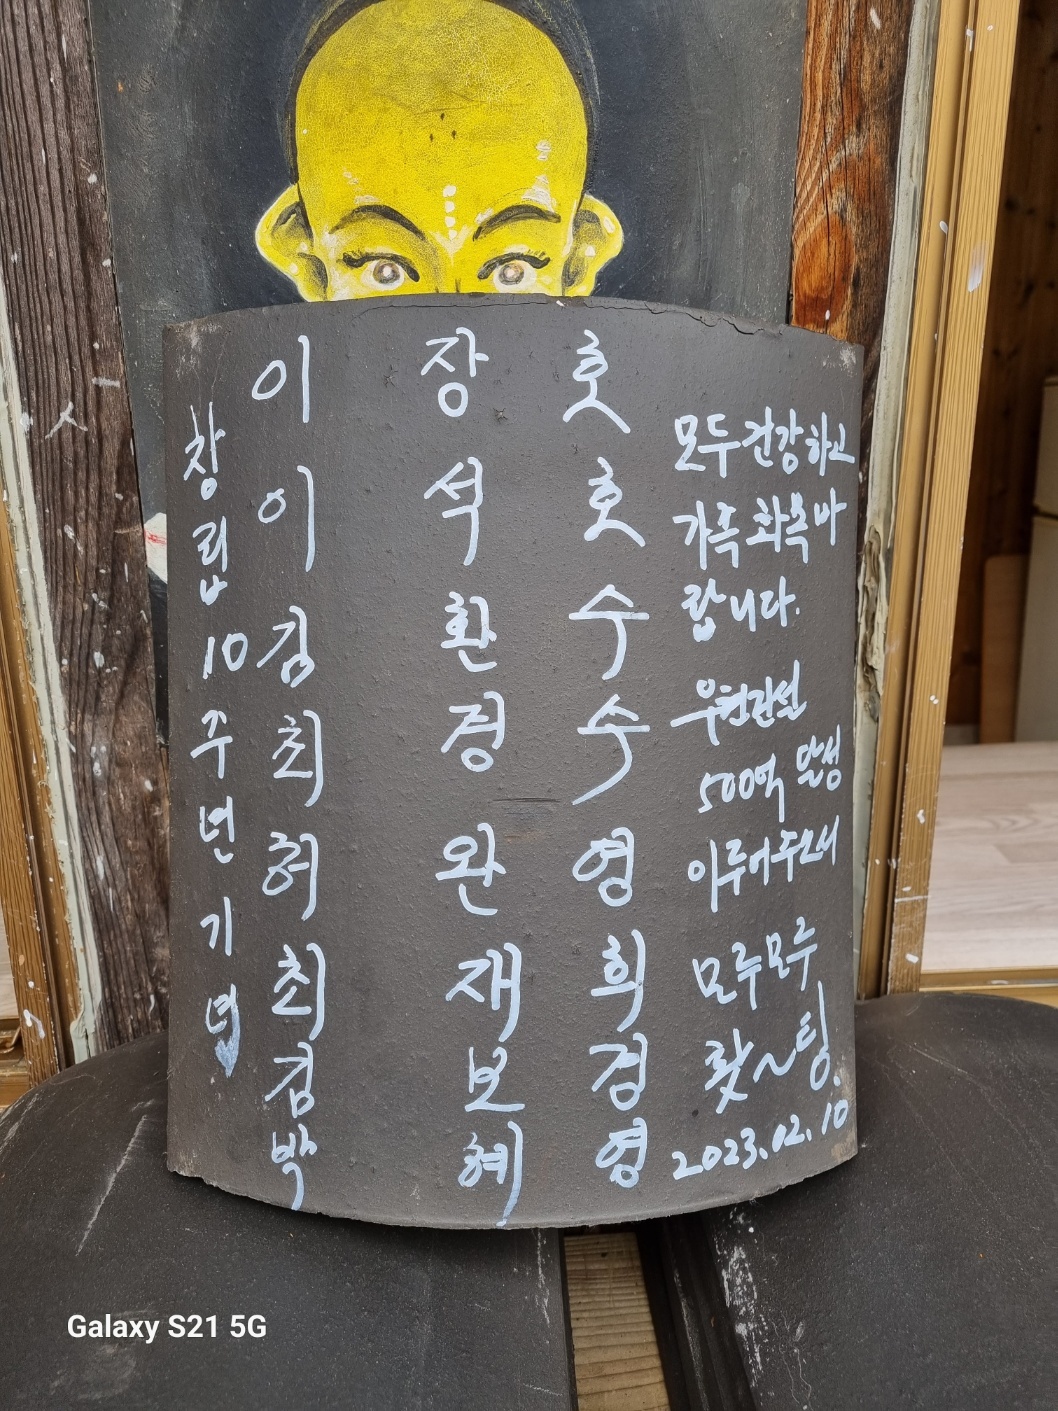 창립 10주년 기념
이장호
이석호
김환수
최경수
허완영
최재희
김보검
박혜영
모두 건강하고
가족 화목 바
랍니다.
우현관설
500억 달성
이루어주소서
모두모두
홧~팅.
2023.02.10
Galaxy S21 5G